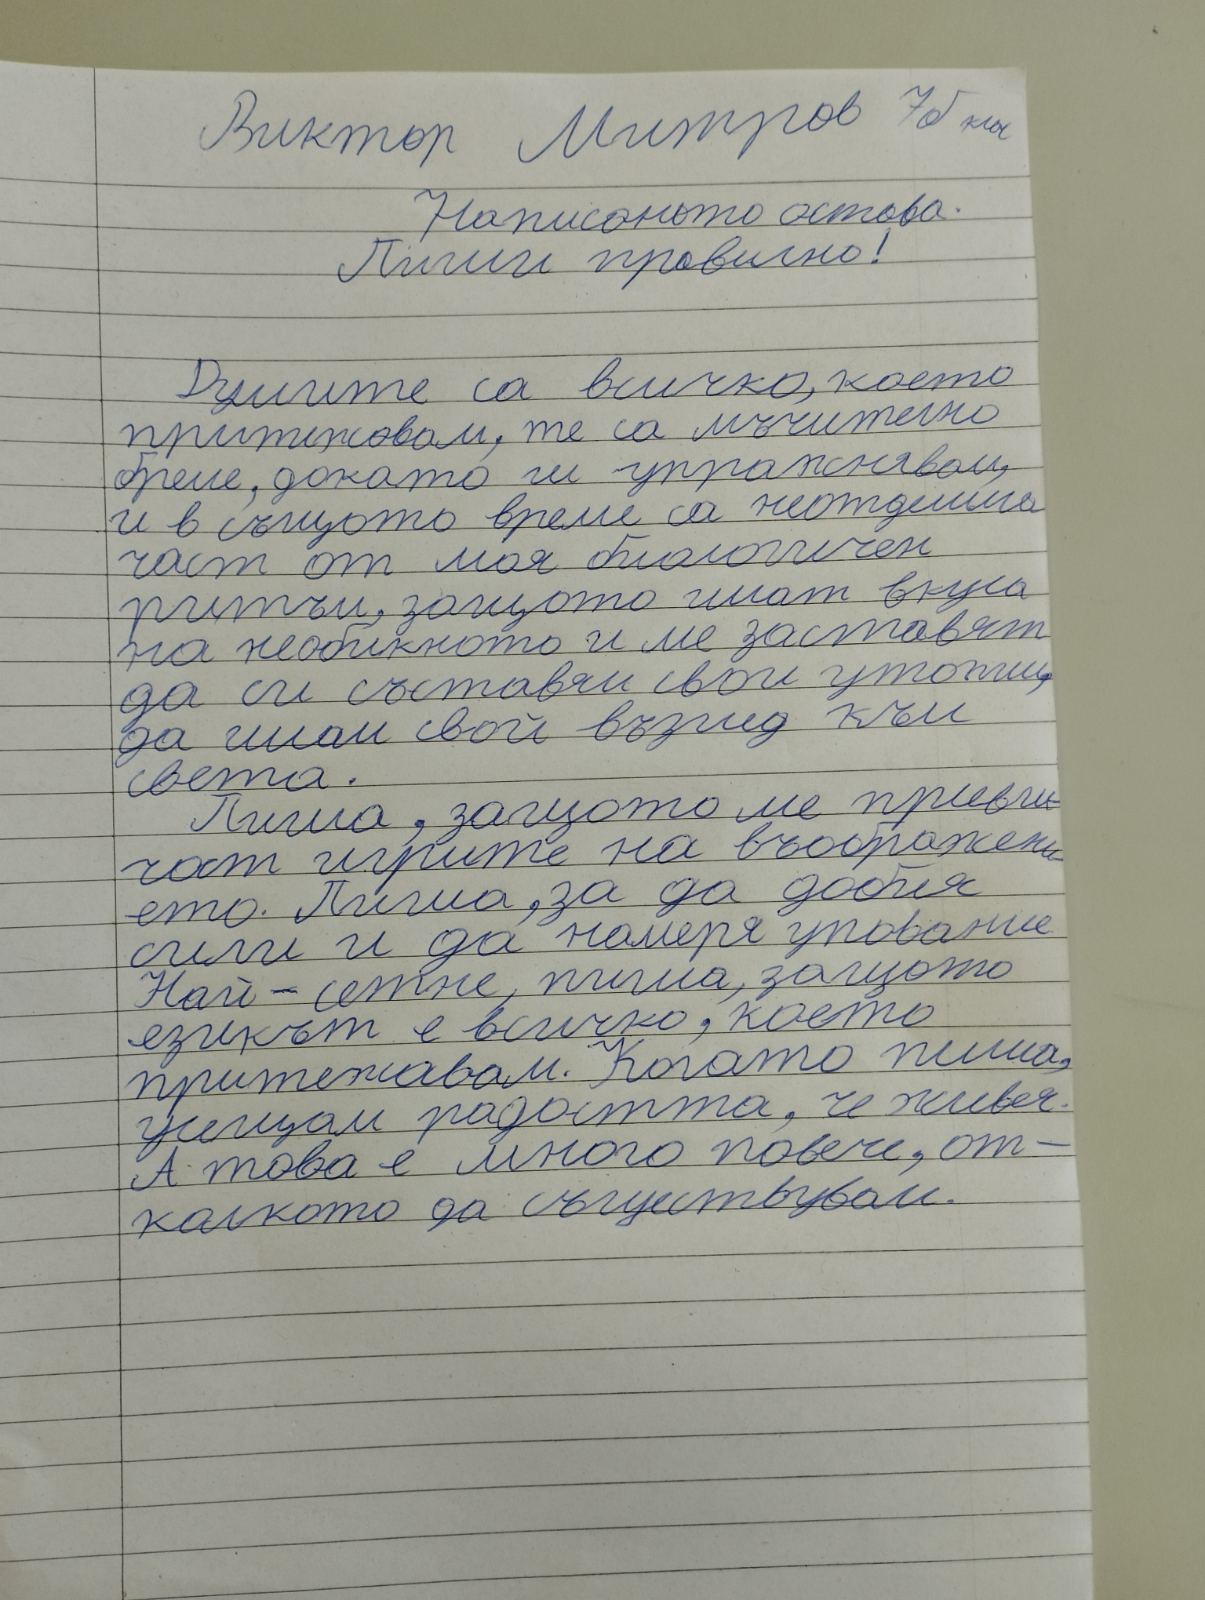 Виктор Митров 7б кл
Написаното остава.
Пиши правилно!
Думите са всичко, което
притежавам, те са мъчително
бреме, докато ги упражнявам,
и в същото време са неотделима
част от моя биологичен
ритъм, защото имат вкуса
на необикното и ме заставят
да си съставям свои утопии,
да имам свой възглед към
света.
Пиша, защото ме привли-
чат игрите на въображени
ето. Пиша, за да добия
сили и да намеря упование
Най-сетне, пиша, защото
езикът е всичко, което
притежавам. Когато пиша,
усещам радостта, че живея.
А това е много повече, от-
колкото да съществувам.